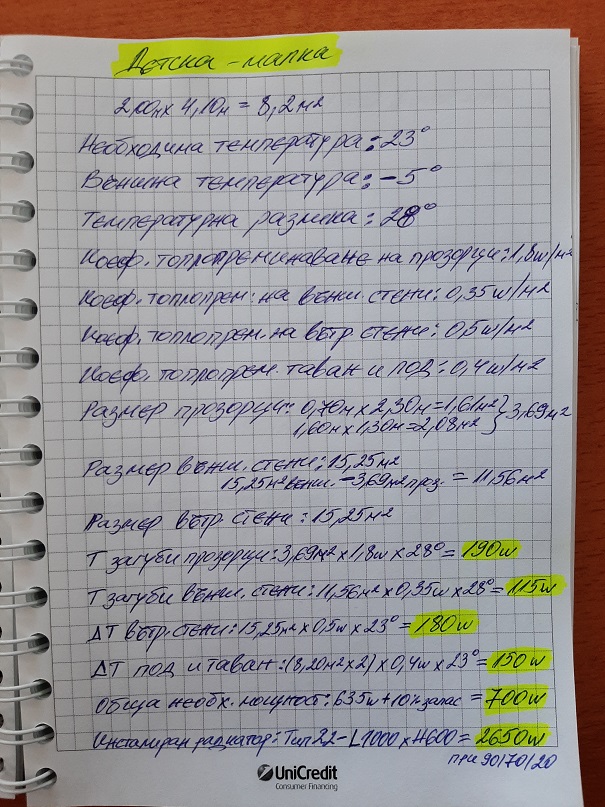 Детска - малка
2,00м x 4,10м = 8,2м²
Необходима температура: 23°
Външна температура: -5°
Температурна разлика: 28°
Коеф. топлопреминаване на прозорци: 1,8w/м²
Коеф. топлопрем. на външ. стени: 0,35w/м²
Коеф. топлопрем. на вътр. стени: 0,5w/м²
Коеф. топлопрем. таван и под: 0,4w/м²
Размер прозорци: 0,70м x 2,30м = 1,61м² } 3,69м²
1,60м x 1,30м = 2,08м²
Размер външ. стени: 15,25м²
15,25м² външ. - 3,69м² проз. = 11,56м²
Размер вътр. стени: 15,25м²
Т загуби прозорци: 3,69м² x 1,8w x 28° = 190w
Т загуби външ. стени: 11,56м² x 0,35w x 28° = 115w
ΔТ вътр. стени: 15,25м² x 0,5w x 23° = 180w
ΔТ под и таван: (8,20м² x 2) x 0,4w x 23° = 150w
Обща необх. мощност: 635w + 10% запас = 700w
Инсталиран радиатор: Тип 22 - L1000 x H600 = 2650w
при 90/70/20
UniCredit
Consumer Financing